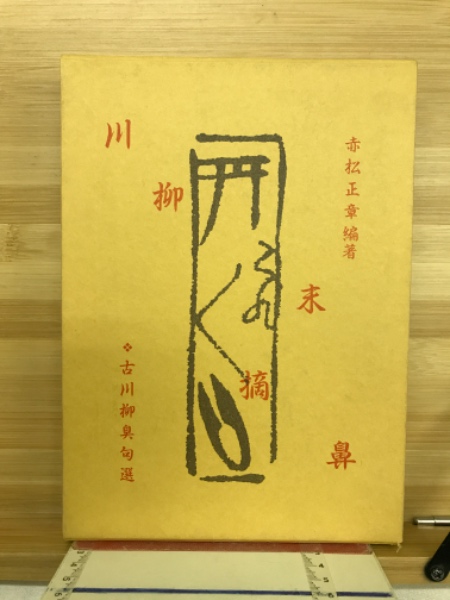 川柳末摘鼻
赤松正章編著
古川柳臭句選